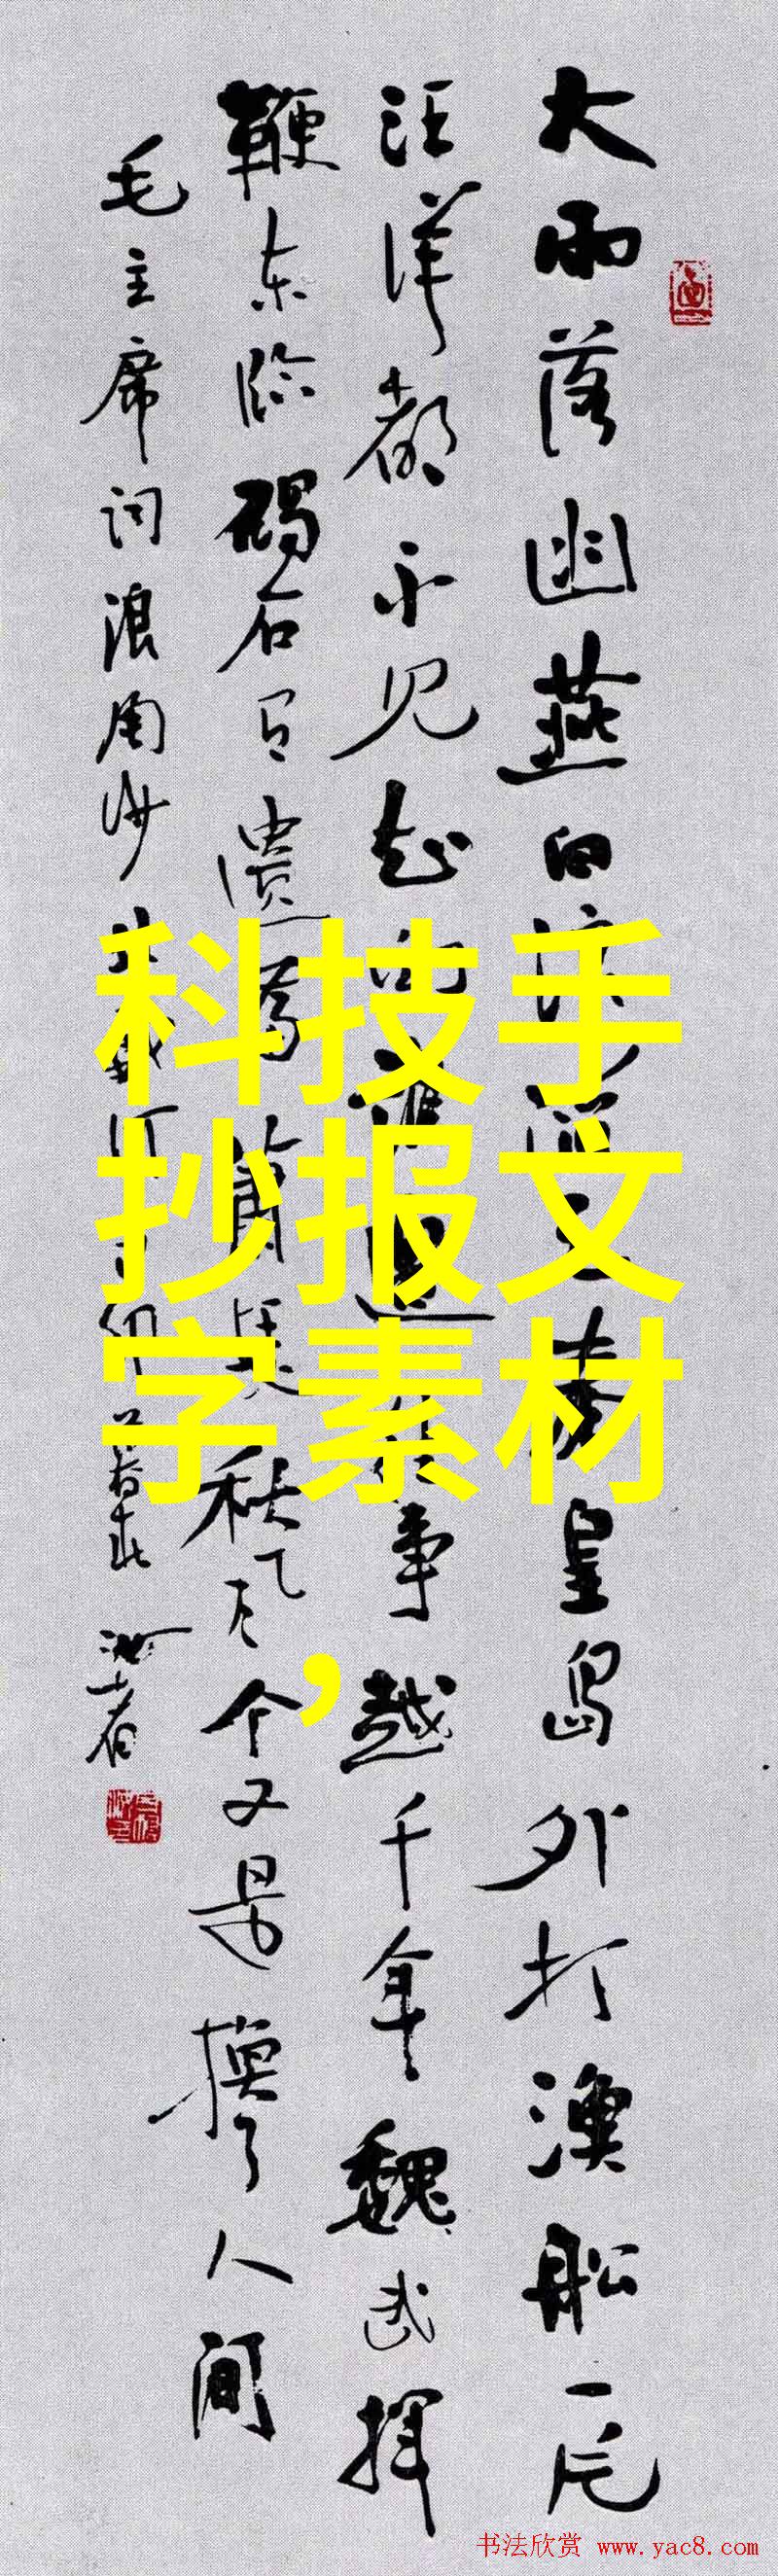 大雨落幽燕白浪滔天秦皇岛外打漁船一片
汪洋都不见知向谁边往事越千年魏武挥
鞭东临碣石有遗篇萧瑟秋风今又是换了人间
毛主席词浪淘沙北戴河丁卯暮春
科技手
抄报文
字素材
，
书法欣赏 www.yac8.com